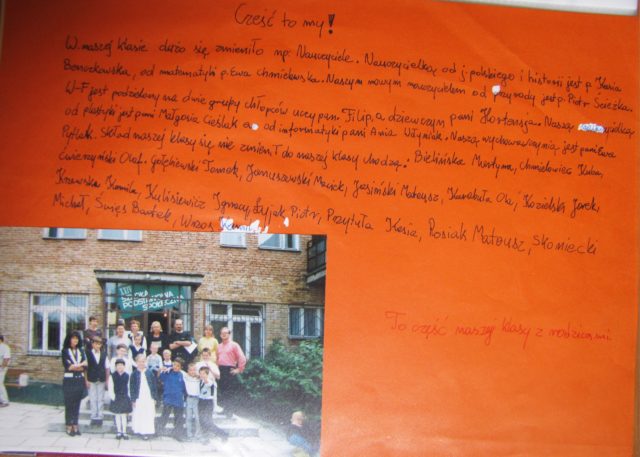 Cześć to my!
W naszej klasie dużo się zmieniło np. Nauczyciele. Nauczycielką od j. polskiego i historii jest p. Kasia
Bonozkowska, od matematyki p. Ewa Chmielewska. Naszym nowym nauczycielem od przyrody jest p. Piotr Ścieżka.
W-F jest podzielony na dwie grupy chłopców uczy pan Filip, a dziewczyn pani Hortensja. Naszą
od plastyki jest pani Małgosia Cieślak a od informatyki pani Ania Naszą wychowawczynią jest pani Ewa
Pytlak. Skład naszej klasy się nie zmienił do naszej klasy chodzą: Bielińska Martyna, Chmielowiec Kuba,
Ćwierzyński Olaf, Gołębiewski Tomek, Januszewski Maciek, Jasiński Mateusz, Karabuła Ola, Kozielski Jarek,
Krzewska Kamila, Kulisiewicz Ignacy, Łyjak Piotr, Przytuła Kasia, Rosiak Mateusz, Słoniecki
Michał, Suręs Bartek, Wrzos
III
SZKOŁA
PODSTAWOWA
SPOŁECZNA
To część naszej klasy z rodzicami